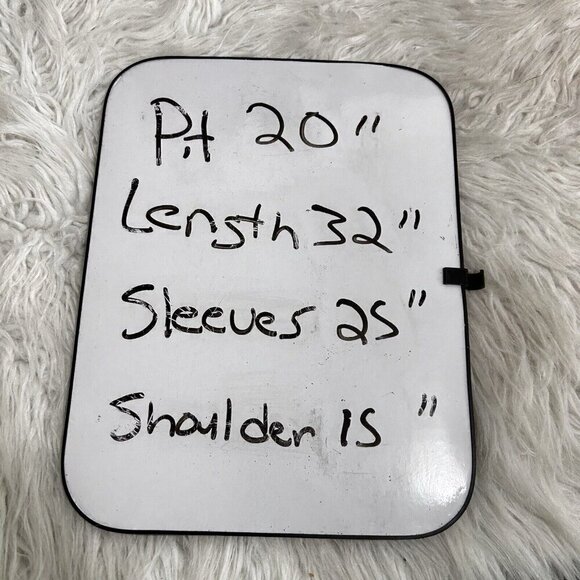 Pit 20"
Length 32"
Sleeves 25"
Shoulder 15"